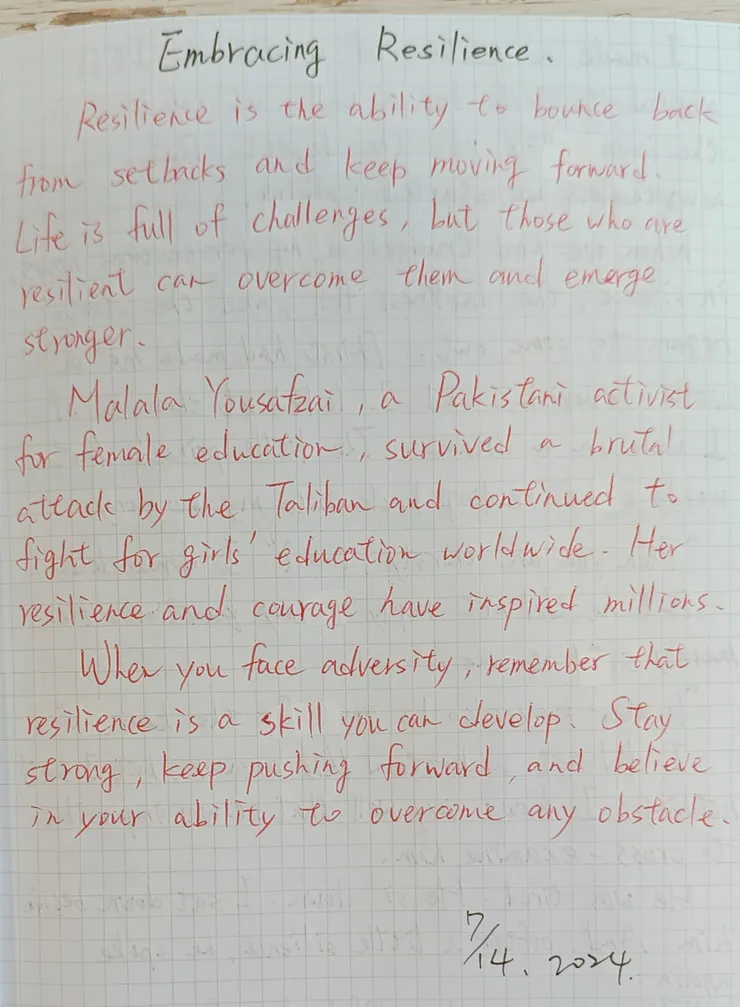 Embracing Resilience.
Resilience is the ability to bounce back
from setbacks and keep moving forward.
Life is full of challenges, but those who are
resilient can overcome them and emerge
stronger.
Malala Yousafzai, a Pakistani activist
for female education, survived a brutal
attack by the Taliban and continued to
fight for girls' education worldwide. Her
resilience and courage have inspired millions.
When you face adversity, remember that
resilience is a skill you can develop. Stay
strong, keep pushing forward, and believe
in your ability to overcome any obstacle.
7/14. 2024.